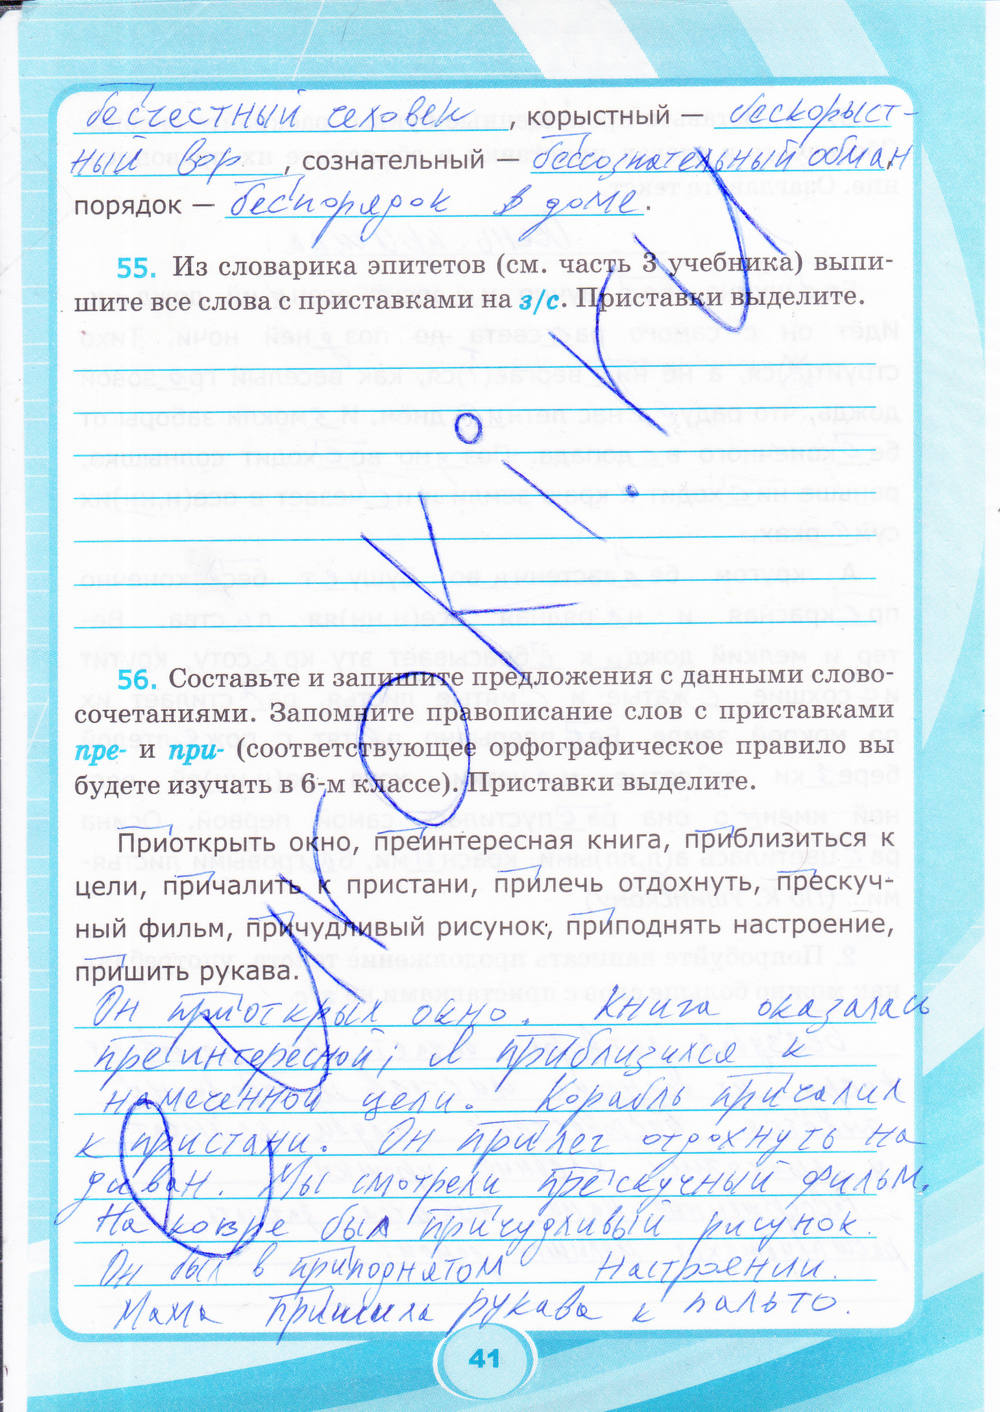 бесчестный человек, корыстный — бескорыст-
ный вор, сознательный — бессознательный обман,
порядок — беспорядок в доме.
55. Из словарика эпитетов (см. часть 3 учебника) выпи-
шите все слова с приставками на з/с. Приставки выделите.
56. Составьте и запишите предложения с данными слово-
сочетаниями. Запомните правописание слов с приставками
пре- и при- (соответствующее орфографическое правило вы
будете изучать в 6-м классе). Приставки выделите.
Приоткрыть окно, преинтересная книга, приблизиться к
цели, причалить к пристани, прилечь отдохнуть, прескуч-
ный фильм, причудливый рисунок, приподнять настроение,
пришить рукава.
Он приоткрыл окно. Книга оказалась
преинтересной, я приблизился к
намеченной цели. Корабль причалил
к пристани. Он прилег отдохнуть на
диван. Мы смотрели прескучный фильм.
На ковре был причудливый рисунок.
Он был в приподнятом настроении.
Мама пришила рукава к пальто.
41